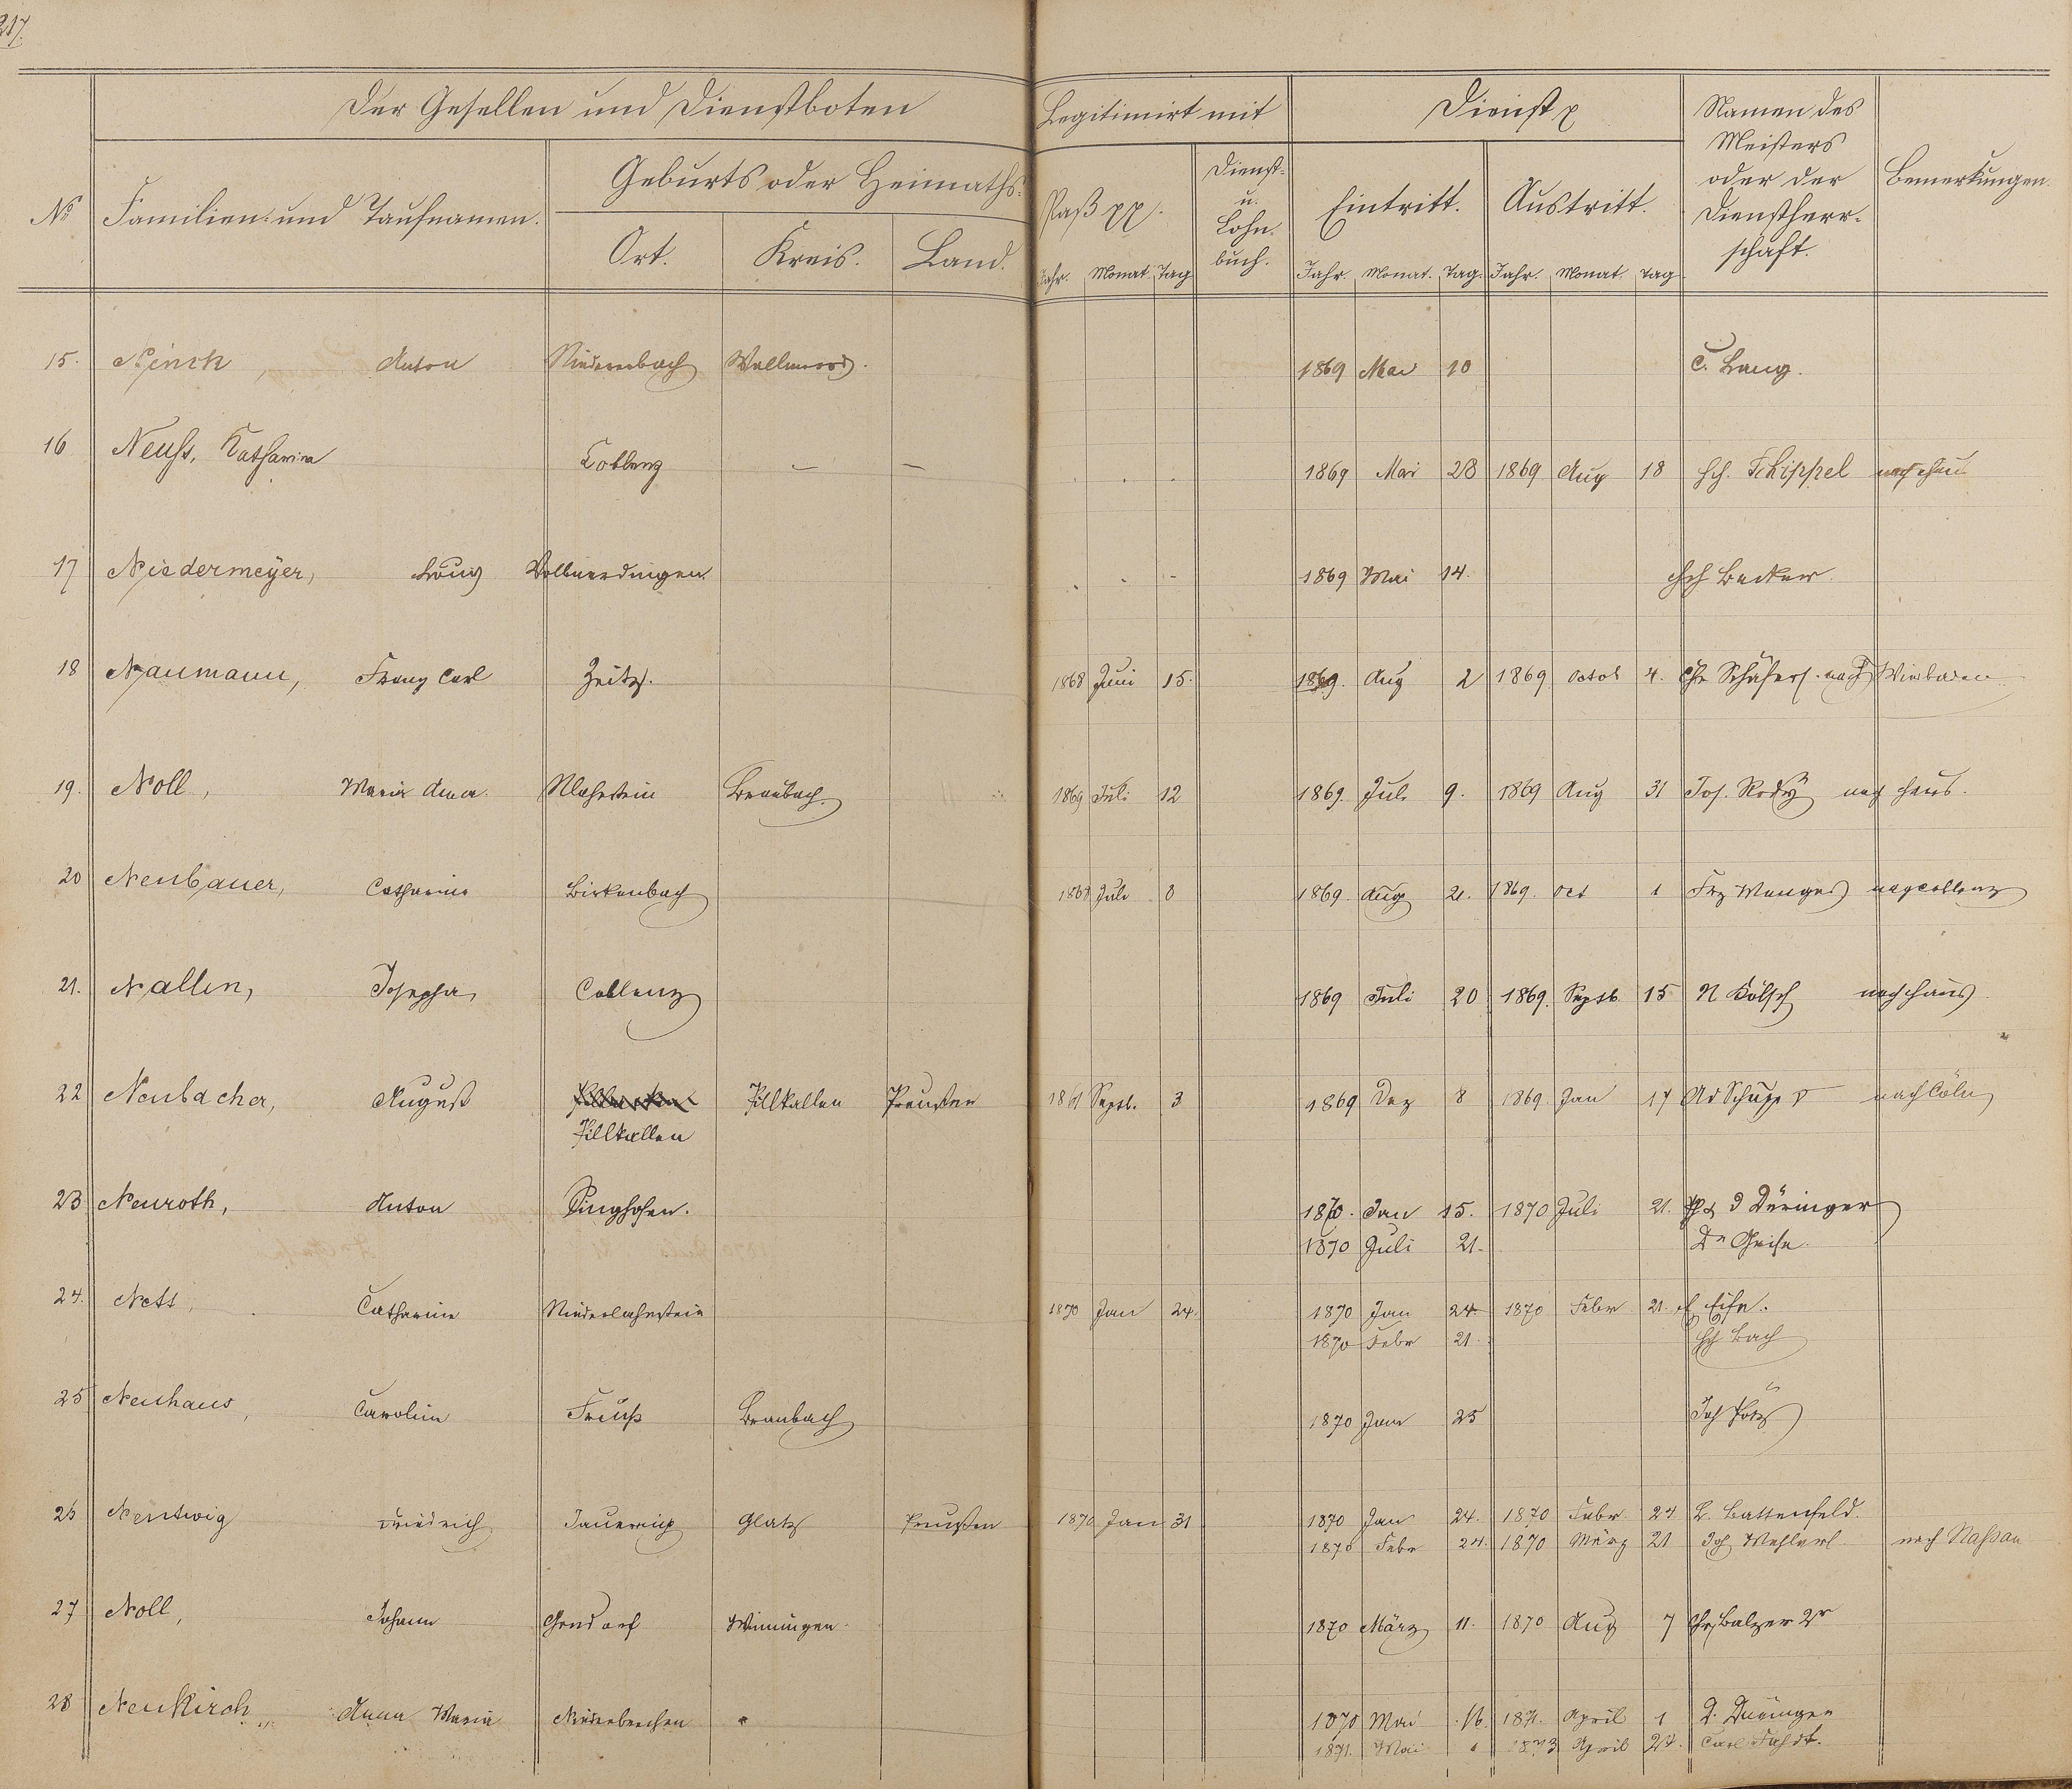 217.
Der Gesellen und Dienstboten
Legitimirt mit
Dienst
Namen des Meisters oder der Dienstherrschaft.
Bemerkungen.
No
Familien- und Taufnamen.
Geburts oder Heimaths-
Ort. Kreis. Land.
Paß pp.
Dienst- u. Lohn-buch.
Eintritt. Austritt.
Jahr. Monat. Tag Jahr. Monat. Tag. Jahr. Monat. Tag
15. Anton Wallmerod. 1869 Mai 10 C. Lang.
16 Neuss, Katharina Coblenz — — 1869 Mai 28 1869 Aug 18 Hch. Schippel
17 Niedermeyer, 1869 Mai 14. Hch Becker
18 Naumann, Franz Carl Zeitz. 1868 Juni 15. 1869. Aug 2 1869 Octob 4. Chr Schäfer nach Wiesbaden
19. Noll, Maria Anna. Braubach. 1869 Juli 12 1869. Juli 9. 1869 Aug 31 Jos. Rody nach Haus.
20 Neubauer, Catharine Birkenbach Juli 8 1869. Aug 21. 1869. Oct 1 Frz Menges nach Coblenz
21. Nallen, Josepha Coblenz 1869 Juli 20 1869. Septb. 15 N Kölsch nach Haus
22 Neubacher, August Pillkallen Preußen Septb. 3 1869 Dez 8 1869. Jan 17 Ad Schupp nach Cöln
Pillkallen
23 Neuroth, Anton Singhofen. 1870. Jan 15. 1870 Juli 21. Düringer
1870 Juli 21.
24. Nett, Catharine Niederlahnstein 1870 Jan 24. 1870 Jan 24. 1870 Febr 21.
1870 Febr 21 Hch Bach
25 Neuhaus, Carolina Braubach 1870 Jan 25
26 Nentwig Friedrich Jauernig Glatz Preußen 1870 Jan 31 1870 Jan 24. 1870 Febr. 24 L. Battenfeld.
1870 Febr 24. 1870 März 21 nach Nassau
27 Noll, Johann Winningen. 1870 März 11. 1870 Aug 7 Chr Balzer 2r
28 Neukirch Anna Maria Niederbrechen 1870 Mai 16. 1871. April 1 D. Düringer
1871. Mai 1 1873 April 24. Carl